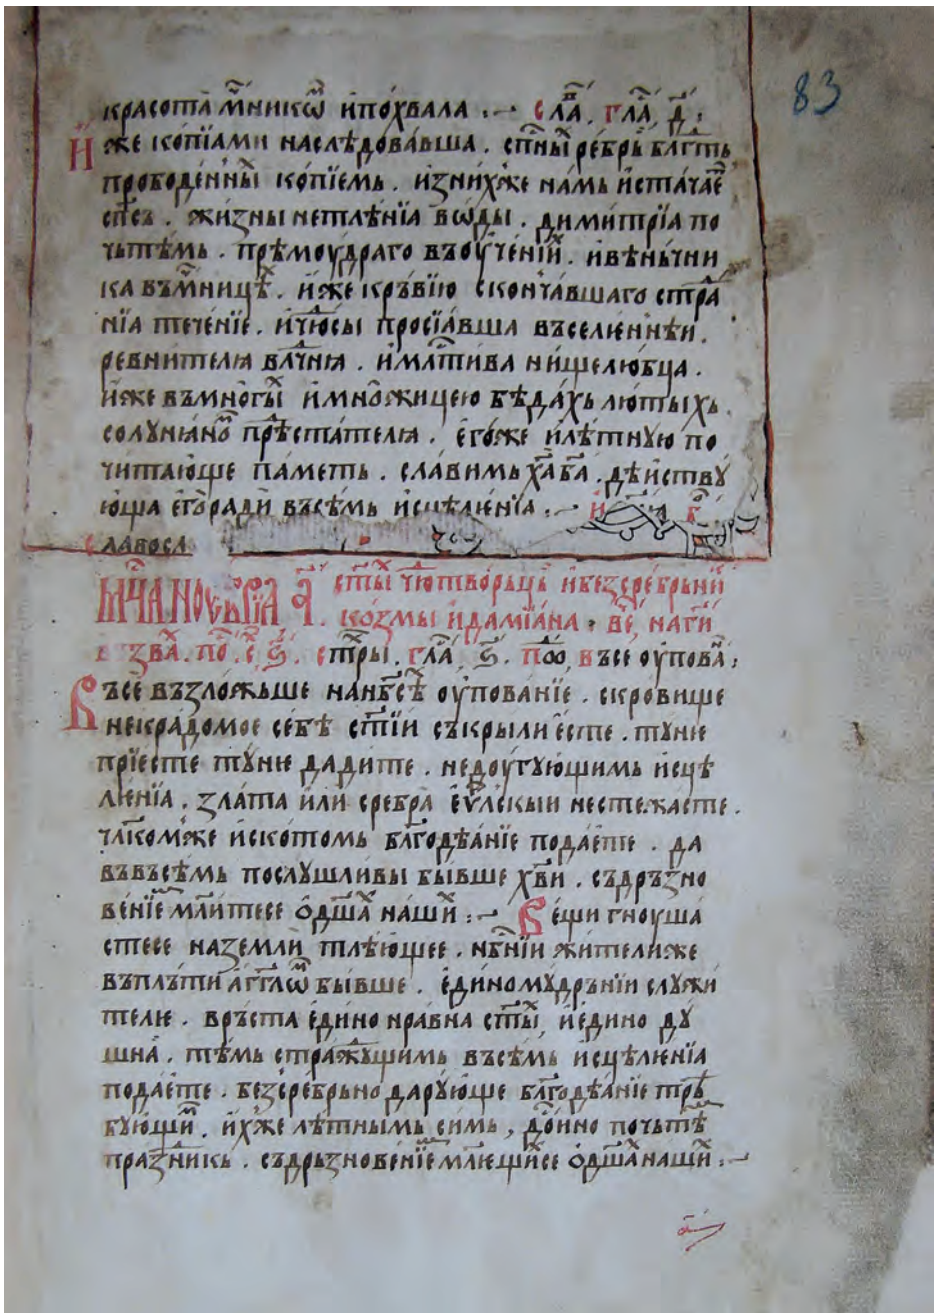 83
красота мⷱ҇никѡⷨ҇ и похвала :~ слаⷡ҇. глаⷭ҇. д҃ :
Иже копїами наслѣдовавша . сп҃сныⷯ ребрь блгⷣть
прободенныⷯ копїемь . из нихже намь истачаеⷮ
сп҃сь . жизны нетлѣнїа вѡды . димитрїа по
чьтѣмь . прѣмоудраго въ оученїиⷯ . и вѣньчни
ка въ мⷱ҇ницѣⷯ . иже кръвїю скончавшаго страⷣ
нїа теченїе . и чюⷣсы просїавша въселеннѣи .
ревнителꙗ влⷣчнꙗ . и млⷭ҇тива нищелюбца .
иже въ многыⷯ и множицею бѣдахь лютыхь
солунꙗноⷨ прѣⷣстателꙗ . егоже и лѣтную по
читающе паметь . славимь х҃а б҃а . дѣиству
юща его ради въсѣмь исцѣленїа :~
славосл
Мⷭ҇ца ноеⷨ҇врїа а҃ . ст҃ыⷯ чюⷣтворьць и безсребрьниⷦ
козмы и дамїана . веⷱ҇ на гⷭ҇и
възваⷯ . поⷭ҇ . с҃ . стⷯры . глаⷭ҇ . ѕ҃ . поⷣⷠ . въсе оуповаⷩ :
Въсе възложьше на нбⷭ҇ѣⷯ оупованїе . скровище
некрадомое себѣ ст҃їи съкрыли есте . туне
прїесте туне дадите . недоугующимь исцѣ
ленїа . злата или сребра еѵⷢ҇лскыи не стежасте .
чл҃комже и скотомь бл҃годѣанїе подаете . да
въ въсѣмь послушливы бывше хв҃и . съ дръзно
венїеⷨ мл҃итесе о дш҃аⷯ нашиⷯ :~ Вещи гноуша
стесе на земли тлѣющее . нбⷭ҇нїи жителиже
въ плъти агг҃лѡⷨ бывше . единомудрънїи служи
телїе . връста единонравна ст҃ыⷯ , и единоду
шна . тѣмь стражⷣущимь въсѣмь исцѣленїа
подаете . безсребрьно дарующе бл҃годѣанїе трѣ
бующиⷨ . ихже лѣтнымь симь , доⷭ҇ино почьтѣⷨ
празⷣникь . съ дрьзновенїеⷨ мл҃ещиⷯсе о дш҃аⷯ нашиⷯ :~